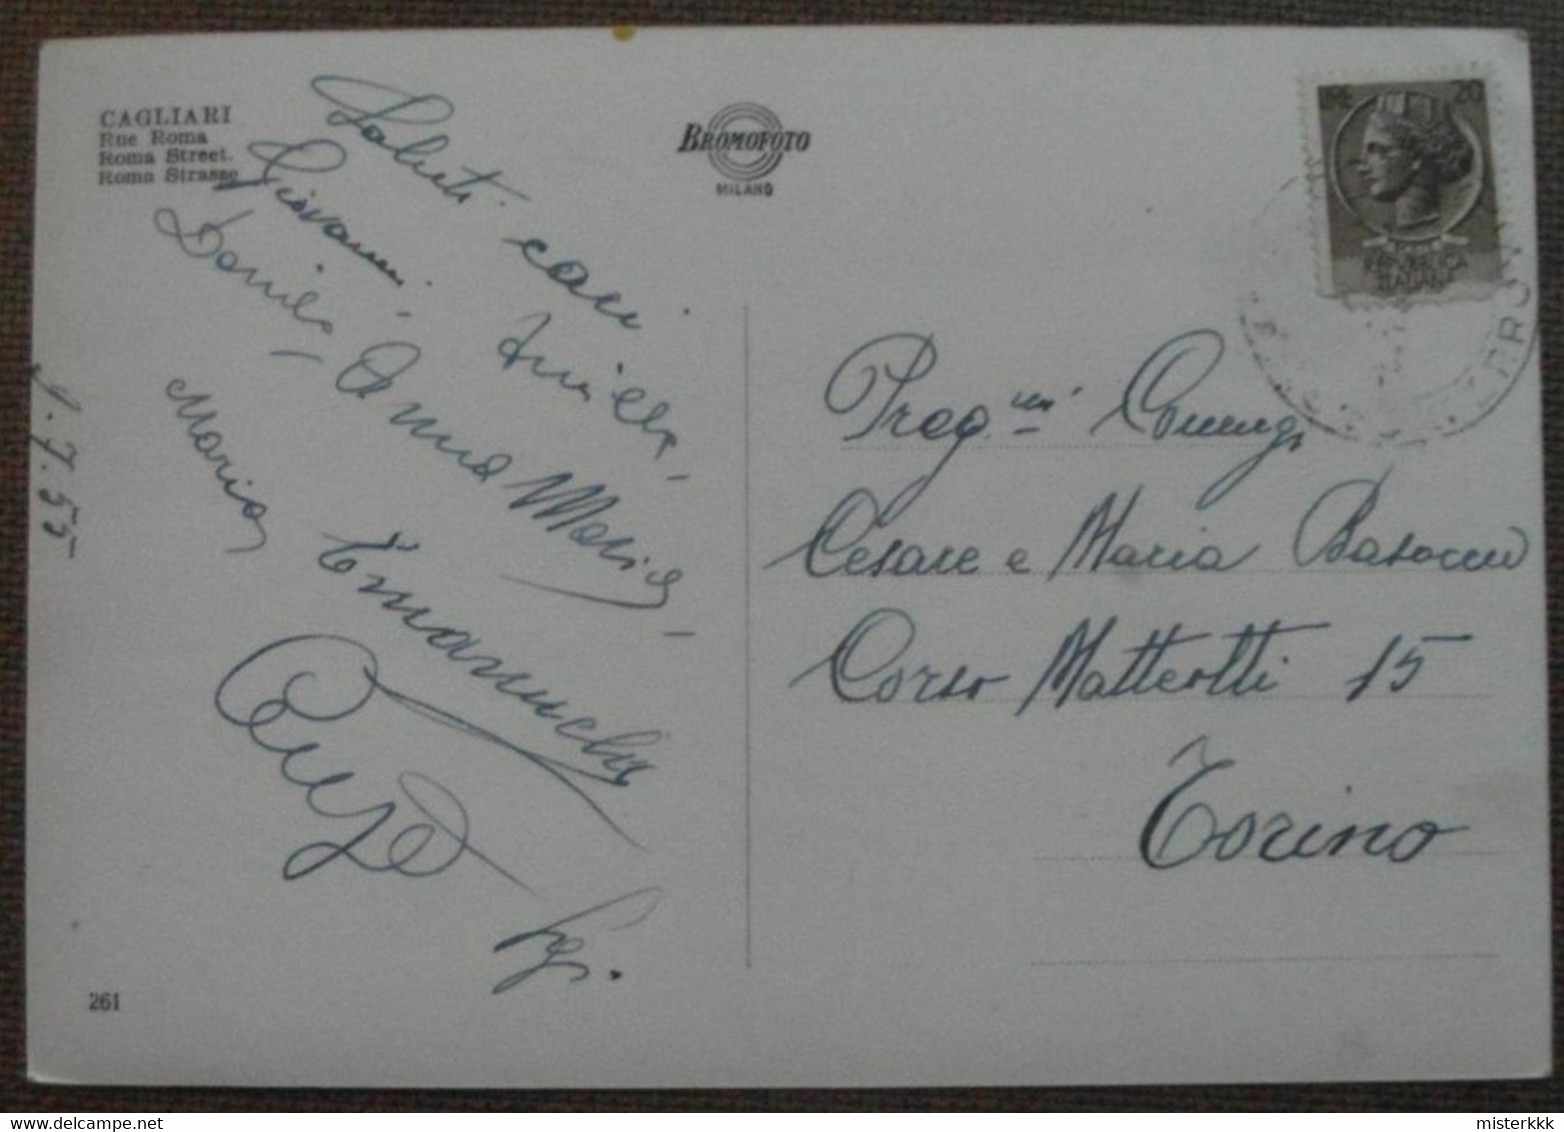 CAGLIARI
Rue Roma
Roma Street.
Roma Strasse
BROMOFOTO
MILANO
LIRE 20
REPVBBLICA
ITALIANA
Saluti cari
Giovanni
Danila Anna Maria
Maria Emanuela
Preg.mi Coniugi
Cesare e Maria
Corso Matteotti 15
Torino
261
misterkkk